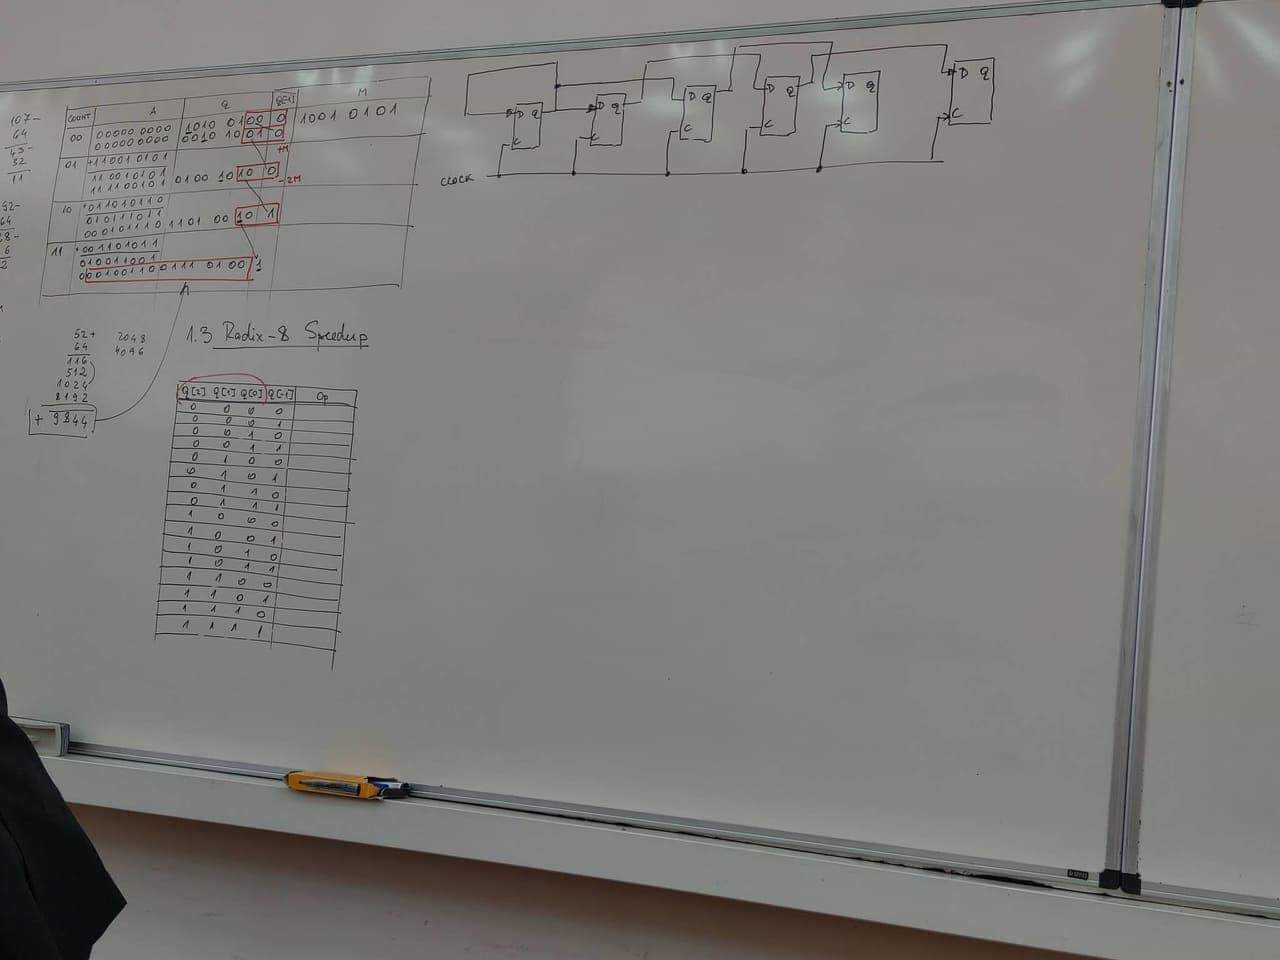 107-
64
43-
32
11
92-
64
28-
6
2
COUNT A Q Q[-1] M
00 00000 0000 1010 0100 0 1001 0101
00000 0000 0010 1001 0
+M
01 +11001 0101
11001 0101
11110 0101 0100 1010 0
-2M
10 +011010110
010111011
000101110 1101 0010 1
11 +001101011
010011001
000100110 0111 0100 1
52+ 2048
64 4096
116
512
1024
8192
+ 9844
1.3 Radix-8 Speedup
Q[2] Q[1] Q[0] Q[-1] Op
0 0 0 0
0 0 0 1
0 0 1 0
0 0 1 1
0 1 0 0
0 1 0 1
0 1 1 0
0 1 1 1
1 0 0 0
1 0 0 1
1 0 1 0
1 0 1 1
1 1 0 0
1 1 0 1
1 1 1 0
1 1 1 1
D Q D Q D Q D Q D Q D Q
C C C C C C
CLOCK